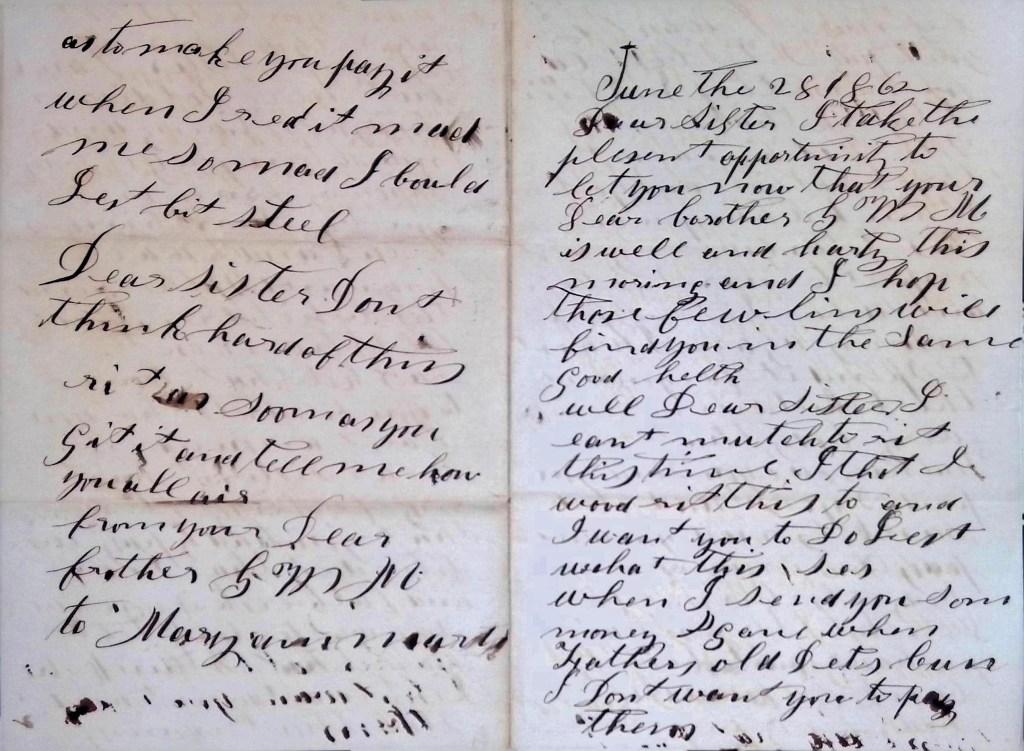 as to make you pay it
when I red it mad
me so mad I could
Jest bit steel
Dear sister Dont
think hard of this
rit as soon as you
git it and tell me how
you all air
from your Dear
brother G W M
to Mary ann
want you
June the 28 1862
Dear Sister I take the
plesent opportunity to
let you now that your
Dear borother G W M
is well and harty this
moring and I hop
those few lins will
find you in the Same
good helth
well Dear Sister I
cant mutch to rit
this time I that I
wood rit this to and
I want you to Do Jest
what this ses
when I send you som
money I gave when
Fathers old Dets
Dont want you to pay
them